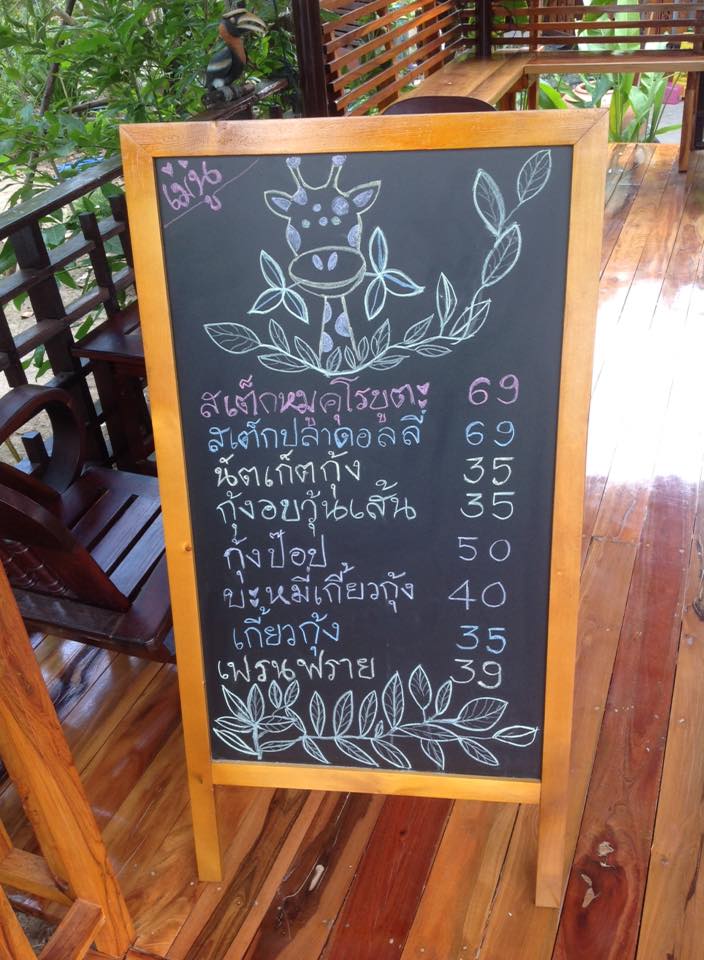 เมนู
สเต็กหมูคุโรบูตะ 69
สเต็กปลาดอลลี่ 69
นัตเก็ตกุ้ง 35
กุ้งอบวุ้นเส้น 35
กุ้งป๊อป 50
บะหมี่เกี้ยวกุ้ง 40
เกี้ยวกุ้ง 35
เฟรนฟราย 39